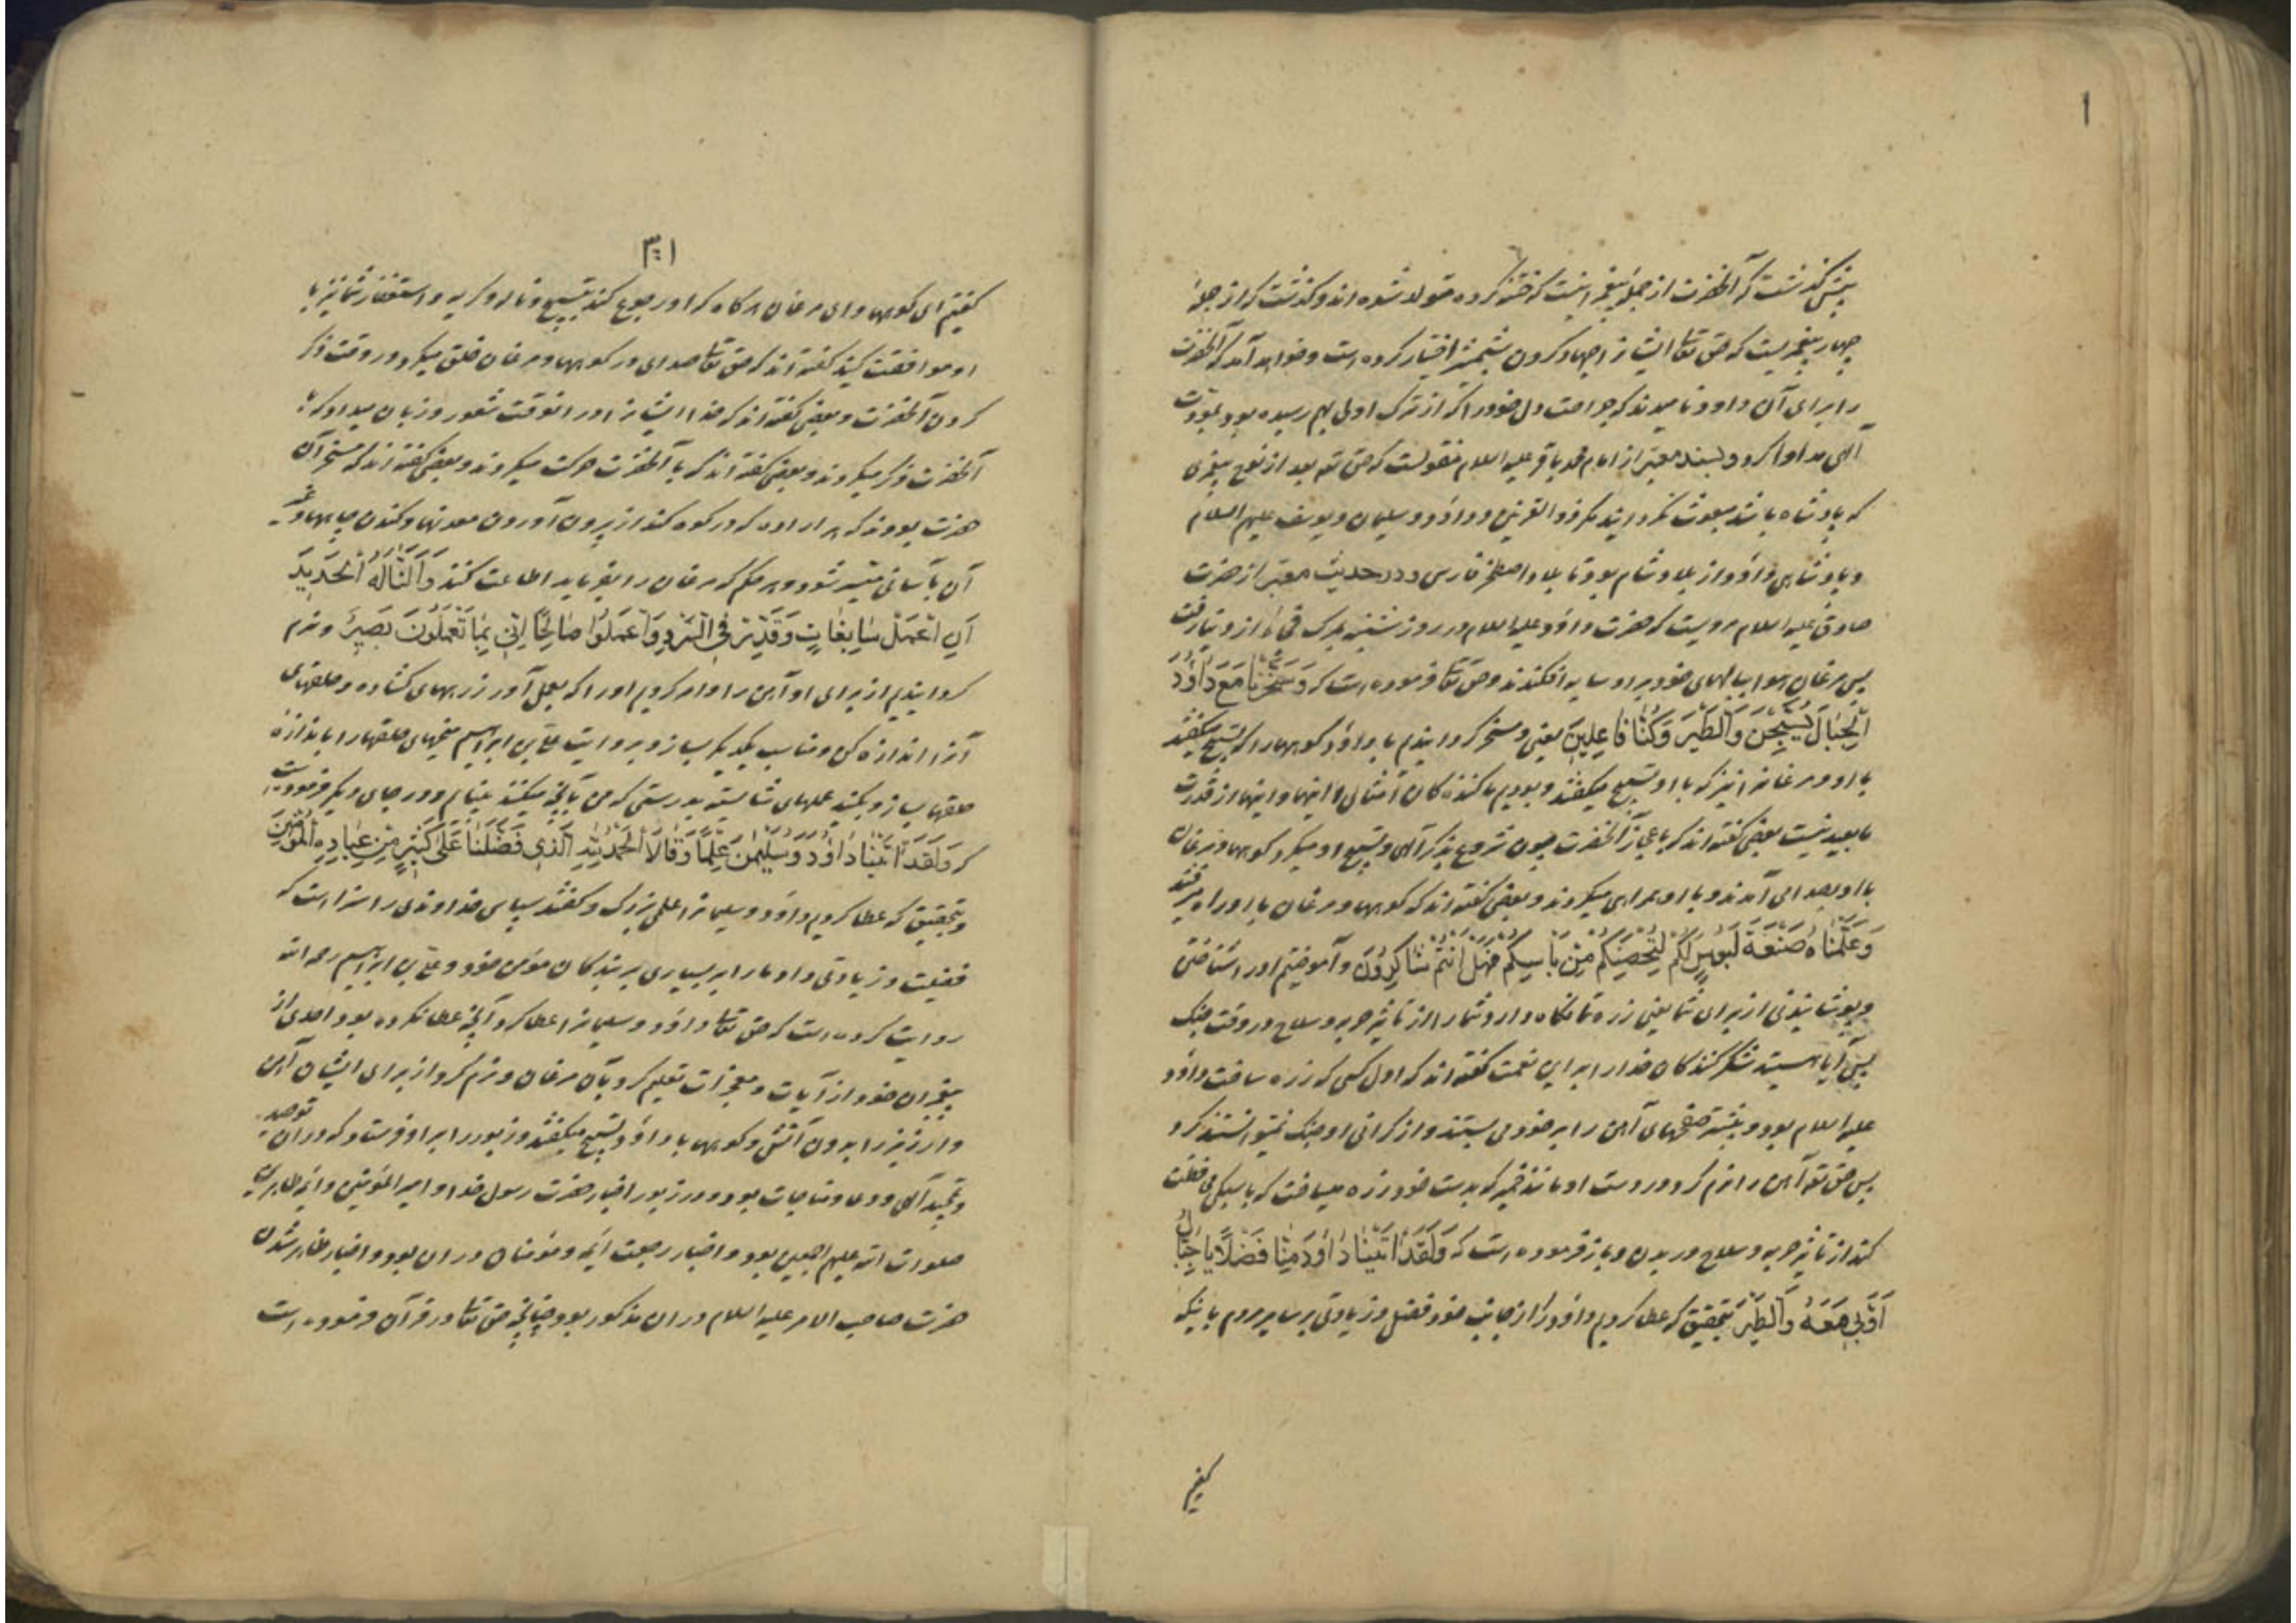 ۱
پیش گذشت که آنحضرت از جمله پیغمبرانیست که ختنه کرده متولد شده اند و گذشت که از جمله
چهار پیغمبریست که حق تعالی ایشانرا جهاد کردن بشمشیر اختیار کرده است و خواهد آمد که آنحضرت
را برای آن داود نامیدند که جراحت دل خود را که از ترک اولی بهم رسیده بود بمودت
الهی مداوا کرد و بسند معتبر از امام محمد باقر علیه السلام منقولست که حق تعه بعد از نوح پیغمبری
که پادشاه باشد مبعوث نگردانید مگر ذو القرنین و داود و سلیمان و یوسف علیهم السلام
و پادشاهی داود از بلاد شام بود تا بلاد اصطخر فارس و در حدیث معتبر از حضرت
صادق علیه السلام مرویست که حضرت داود علیه السلام در روز شنبه بمرک فجاءه از دنیا رفت
پس مرغان هوا ببالهای خود بر او سایه افکندند و حق تعالی فرموده است که وَسَخَّرْنَا مَعَ دَاوُدَ
الْجِبَالَ يُسَبِّحْنَ وَالطَّيْرَ وَكُنَّا فَاعِلِينَ یعنی و مسخر گردانیدیم با داود کوهها را که تسبیح میگفتند
با او و مرغانرا نیز که با او تسبیح میگفتند و بودیم ما کننده کان امثال اینها و اینها از قدرت
ما بعید نیست بعضی گفته اند که باعجاز آنحضرت چون شروع بذکر الهی و تسبیح او میکرد کوهها و مرغان
با او بصدا می آمدند و با او همراهی میکردند و بعضی گفته اند که کوهها و مرغان با او راه میرفتند
وَعَلَّمْنَاهُ صَنْعَةَ لَبُوسٍ لَكُمْ لِتُحْصِنَكُمْ مِنْ بَأْسِكُمْ فَهَلْ أَنْتُمْ شَاكِرُونَ و آموختیم او را ساختن
و پوشانیدنی از برای شما یعنی زره تا نگاه دارد شما را از تاثیر حربه و سلاح در وقت جنک
پس آیا هستید شکر کنندکان خدا را بر این نعمت گفته اند که اول کسی که زره ساخت داود
علیه السلام بود و پیشتر صفحهای آهن را بر خود می بستند و از گرانی او جنک نمیتوانستند کرد
پس حق تعه آهن را نرم کرد در دست او مانند خمیر که بدست خود زره میساخت که با سبکی محافظت
کند از تاثیر حربه و سلاح در بدن و باز فرموده است که وَلَقَدْ آتَيْنَا دَاوُدَ مِنَّا فَضْلًا يَا جِبَالُ
أَوِّبِي مَعَهُ وَالطَّيْرَ بتحقیق که عطا کردیم داود را از جانب خود فضل و زیادتی بر سایر مردم باینکه
گفتیم
گفتیم ای کوهها و ای مرغان هر گاه که او رجوع کند بتسبیح و ناله و گریه و استغفار شما نیز با
او موافقت کنید گفته اند که حق تعالی صدای در کوهها و مرغان خلق میکرد در وقت ذکر
کردن آنحضرت و بعضی گفته اند که خدا ایشانرا در انوقت شعور و زبان میداد که با
آنحضرت ذکر میکردند و بعضی گفته اند که با آنحضرت حرکت میکردند و بعضی گفته اند که مسخر آن
حضرت بودند که هر اراده که در کوه کند از بیرون آوردن معدنها و کندن چاهها و غیر
آن بآسانی میسر شود و هر حکم که مرغان را بفرماید اطاعت کنند وَأَلَنَّا لَهُ الْحَدِيدَ
أَنِ اعْمَلْ سَابِغَاتٍ وَقَدِّرْ فِي السَّرْدِ وَاعْمَلُوا صَالِحًا إِنِّي بِمَا تَعْمَلُونَ بَصِيرٌ و نرم
گردانیدیم از برای او آهن را و امر کردیم او را که بعمل آور زرههای گشاده و حلقهای
آنرا اندازه کن و مناسب یکدیگر بساز و بروایت علی بن ابراهیم میخهای حلقها را باندازه
حلقها بساز و بکنید عملهای شایسته بدرستی که من بآنچه میکنید بینایم و در جای دیگر فرموده است
که وَلَقَدْ آتَيْنَا دَاوُدَ وَسُلَيْمَانَ عِلْمًا وَقَالَا الْحَمْدُ لِلَّهِ الَّذِي فَضَّلَنَا عَلَى كَثِيرٍ مِنْ عِبَادِهِ الْمُؤْمِنِينَ
و بتحقیق که عطا کردیم داود و سلیمانرا علمی بزرک و گفتند سپاس خداوندی را سزا است که
فضیلت و زیادتی داد ما را بر بسیاری بر بندکان مومن خود و علی بن ابراهیم رحمه الله
روایت کرده است که حق تعالی داود و سلیمانرا عطا کرد آنچه عطا نکرده بود احدی از
پیغمبران خود از آیات و معجزات تعلیم کرد بآن مرغان و نرم کرد از برای ایشان آهن
و ارزیز را بدون آتش و کوهها با داود تسبیح میگفتند و زبور را بر او فرستاد که در ان توحید
و تمجید آلهی و دعا و مناجات بود و در زبور اخبار حضرت رسول خدا و امیر المؤمنین و ائمه طاهرین
صلوات الله علیهم اجمعین بود و اخبار رجعت ائمه و مؤمنان در ان بود و اخبار ظاهر شدن
حضرت صاحب الامر علیه السلام در ان مذکور بود چنانچه حق تعالی در قرآن فرموده است